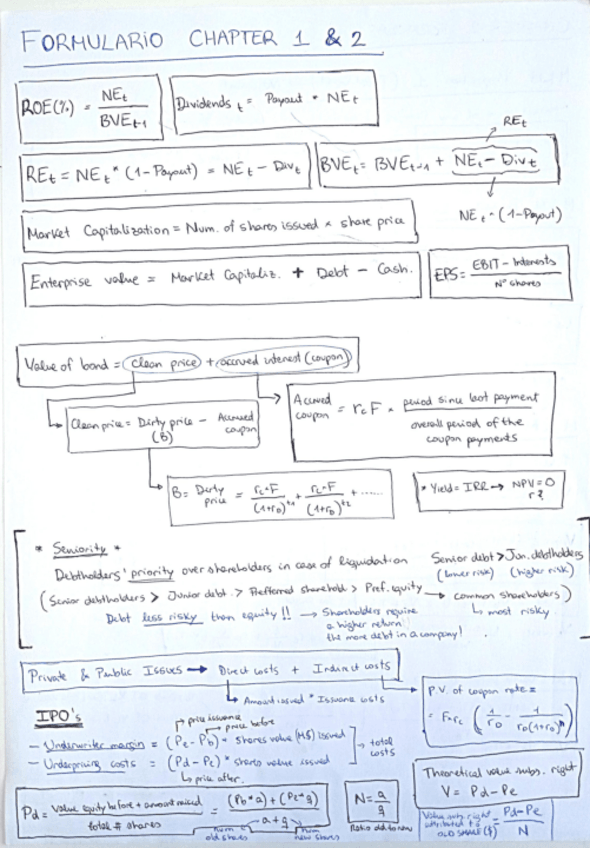 FORMULARIO CHAPTER 1 & 2
ROE(%) = NEt / BVEt-1
Dividends t = Payout * NEt
REt
REt = NEt * (1-Payout) = NEt - Divt
BVEt = BVEt-1 + NEt - Divt
NEt * (1-Payout)
Market Capitalization = Num. of shares issued × share price
Enterprise value = Market Capitaliz. + Debt - Cash.
EPS = EBIT - Interests / Nº shares
Value of bond = clean price + accrued interest (coupon)
Clean price = Dirty price - Accrued coupon
(B)
Accrued coupon = rc F * period since last payment / overall period of the coupon payments
B = Dirty price = rc·F / (1+rD)^t1 + rc·F / (1+rD)^t2 + ......
* Yield = IRR → NPV = 0
r?
* Seniority *
Debtholders' priority over shareholders in case of liquidation
Senior debt > Jun. debtholders
(lower risk) (higher risk)
(Senior debtholders > Junior debt. > Prefferred sharehold > Pref. equity → common shareholders)
↳ most risky
Debt less risky than equity!! → Shareholders require
a higher return!!
the more debt in a company!
Private & Public Issues → Direct costs + Indirect costs
↳ Amount issued * Issuance costs
P.V. of coupon rate =
= F × rc (1/rD - 1/rD(1+rD)^n)
IPO's
price issuance
price before
- Underwriter margin = (Pe - Pb) * shares value issued
- Underpricing costs = (Pd - Pe) * shares value issued
→ total costs
↳ price after.
Theoretical value subs. right
V = Pd - Pe
Pd = Value equity before + amount raised / total # shares = (Pb * a) + (Pe * q) / a + q
num old shares
num new shares
N = a / q
Ratio old to new
Value sub. right attributed to OLD SHARE = Pd - Pe / N